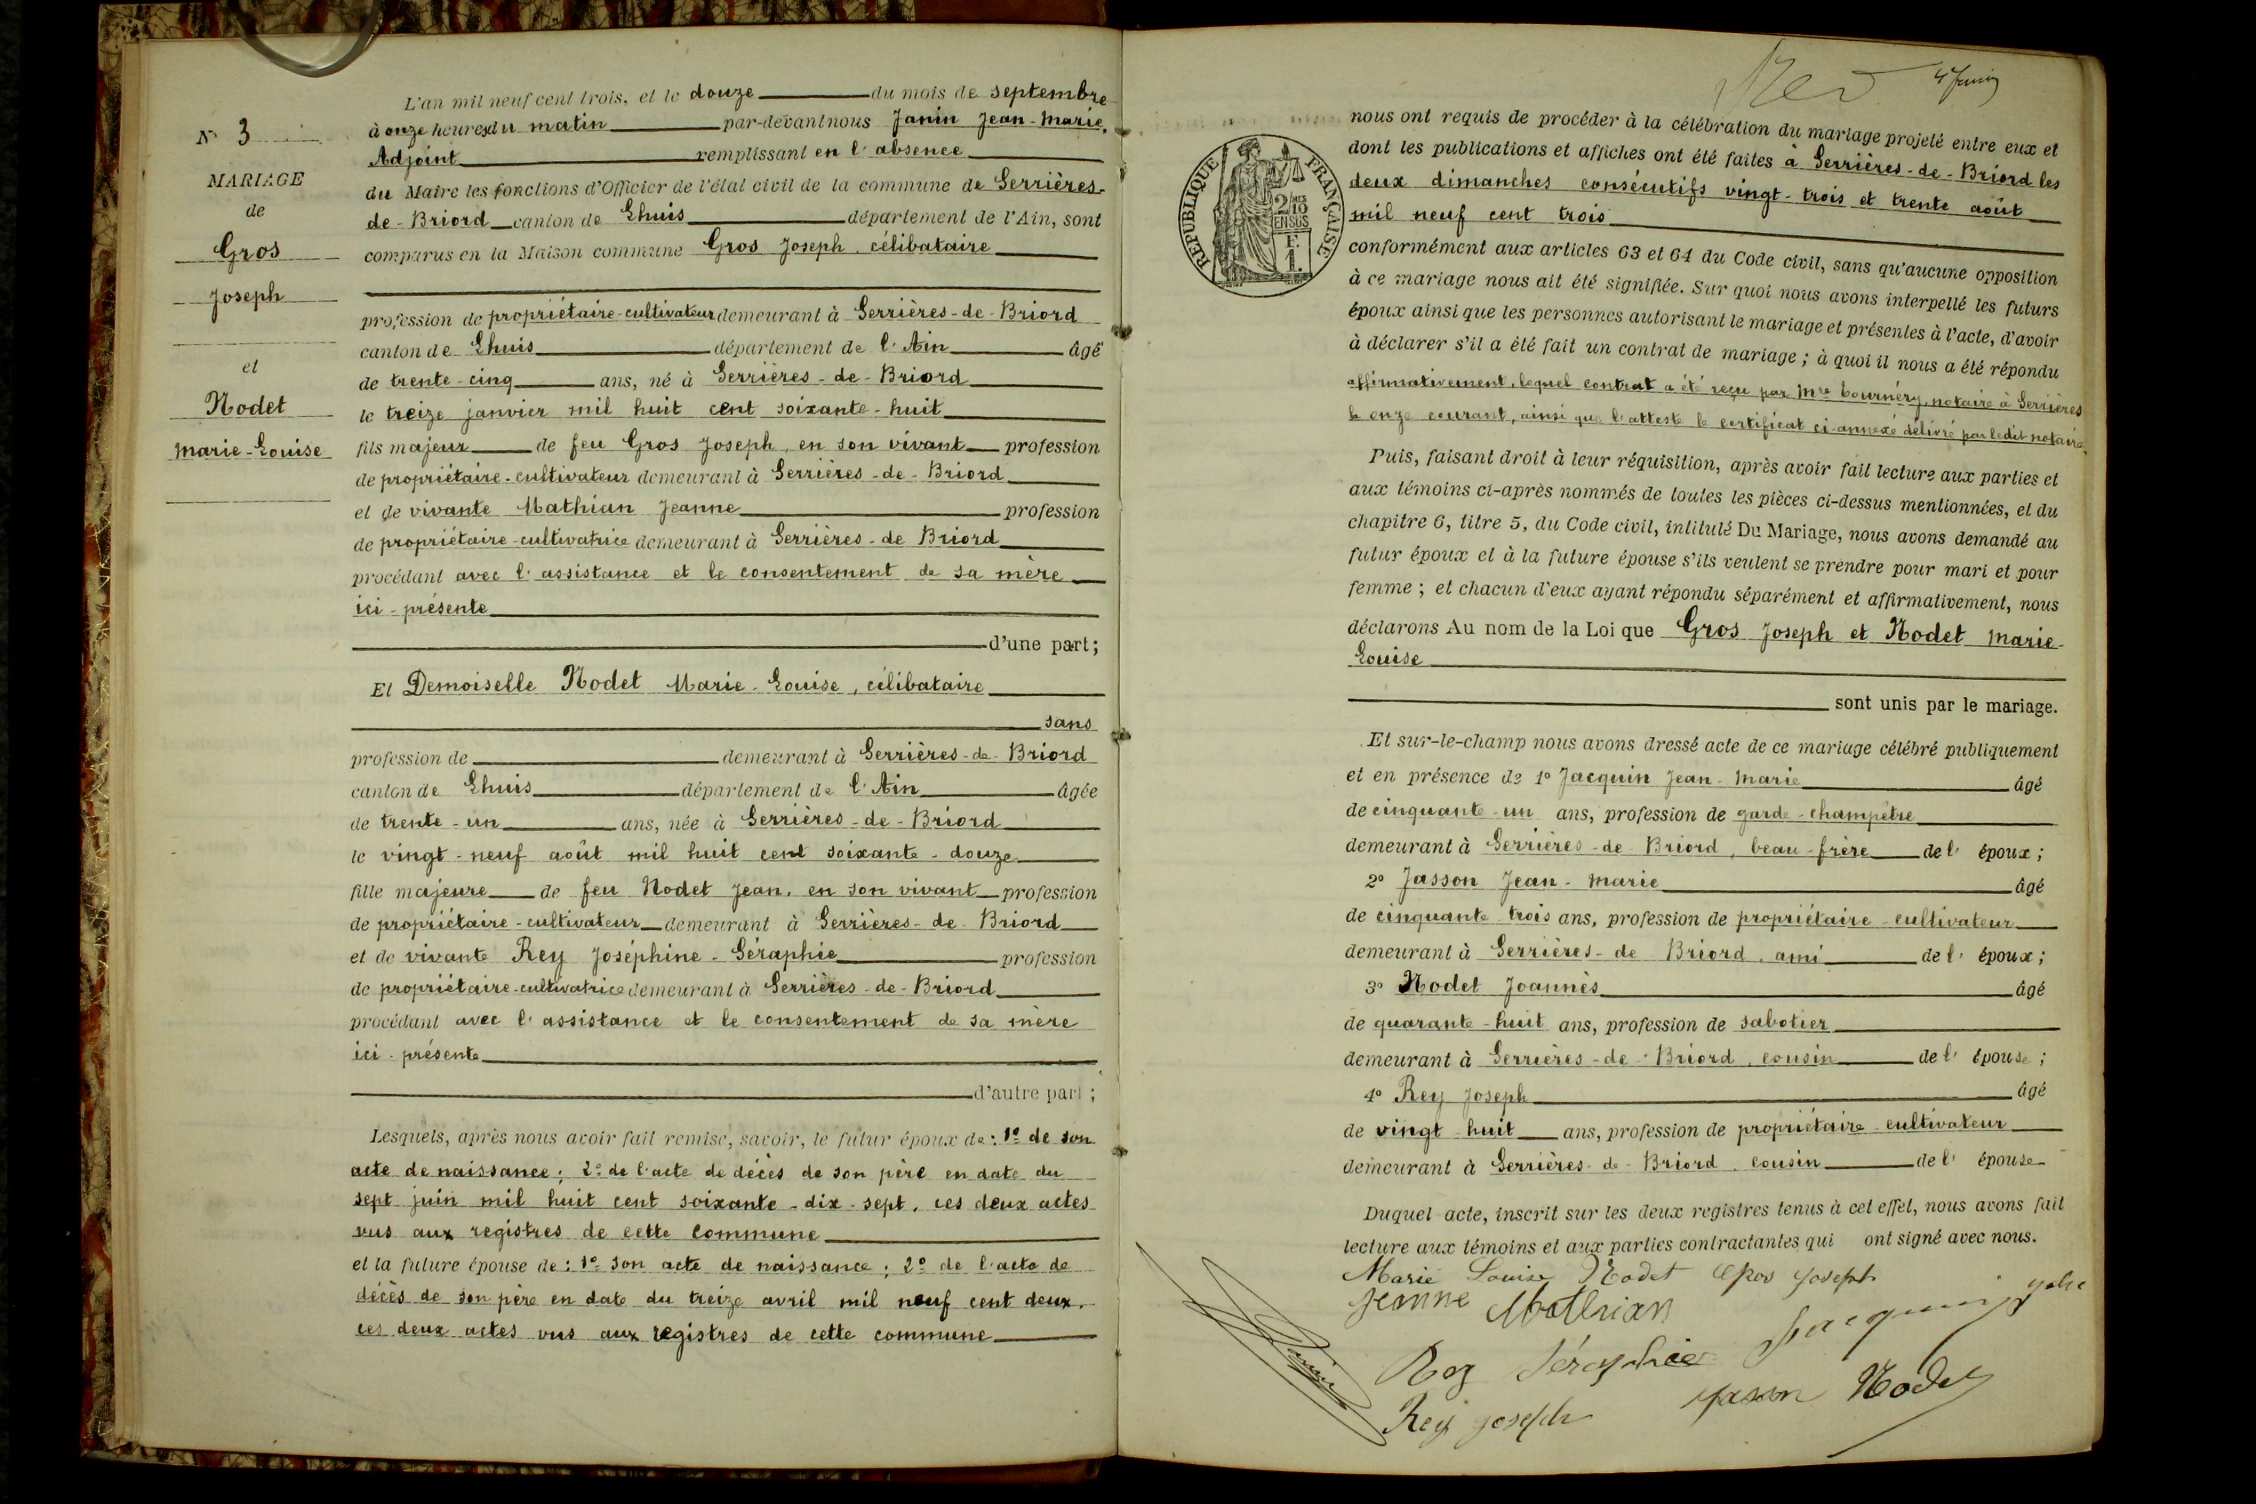 N° 3
MARIAGE
de
Gros
Joseph
et
Nodet
Marie-Louise
L'an mil neuf cent trois, et le douze du mois de septembre
à onze heures du matin par-devant nous Janin Jean-Marie,
Adjoint remplissant en l'absence
du Maire les fonctions d'Officier de l'état civil de la commune de Serrières-
de-Briord canton de Lhuis département de l'Ain, sont
comparus en la Maison commune Gros Joseph, célibataire
profession de propriétaire-cultivateur demeurant à Serrières-de-Briord
canton de Lhuis département de l'Ain âgé
de trente-cinq ans, né à Serrières-de-Briord
le treize janvier mil huit cent soixante-huit
fils majeur de feu Gros Joseph, en son vivant profession
de propriétaire-cultivateur demeurant à Serrières-de-Briord
et de vivante Mathian Jeanne profession
de propriétaire-cultivatrice demeurant à Serrières-de Briord
procédant avec l'assistance et le consentement de sa mère
ici-présente
d'une part;
Et Demoiselle Nodet Marie-Louise, célibataire
sans
profession de demeurant à Serrières-de-Briord
canton de Lhuis département de l'Ain âgée
de trente-un ans, née à Serrières-de-Briord
le vingt-neuf août mil huit cent soixante-douze
fille majeure de feu Nodet Jean, en son vivant profession
de propriétaire-cultivateur demeurant à Serrières-de-Briord
et de vivante Rey Joséphine-Séraphie profession
de propriétaire-cultivatrice demeurant à Serrières-de-Briord
procédant avec l'assistance et le consentement de sa mère
ici-présente
d'autre part;
Lesquels, après nous avoir fait remise, savoir, le futur époux de: 1° de son
acte de naissance; 2° de l'acte de décès de son père en date du
sept juin mil huit cent soixante-dix-sept, ces deux actes
vus aux registres de cette commune
et la future épouse de: 1° son acte de naissance; 2° de l'acte de
décès de son père en date du treize avril mil neuf cent deux,
ces deux actes vus aux registres de cette commune
RÉPUBLIQUE FRANÇAISE
2/10
EN SUS
F.
1.
nous ont requis de procéder à la célébration du mariage projeté entre eux et
dont les publications et affiches ont été faites à Serrières-de-Briord les
deux dimanches consécutifs vingt-trois et trente août
mil neuf cent trois
conformément aux articles 63 et 64 du Code civil, sans qu'aucune opposition
à ce mariage nous ait été signifiée. Sur quoi nous avons interpellé les futurs
époux ainsi que les personnes autorisant le mariage et présentes à l'acte, d'avoir
à déclarer s'il a été fait un contrat de mariage; à quoi il nous a été répondu
affirmativement, lequel contrat a été reçu par Mre Cournéry, notaire à Serrières
le onze courant, ainsi que l'atteste le certificat ci-annexé délivré par ledit notaire.
Puis, faisant droit à leur réquisition, après avoir fait lecture aux parties et
aux témoins ci-après nommés de toutes les pièces ci-dessus mentionnées, et du
chapitre 6, titre 5, du Code civil, intitulé Du Mariage, nous avons demandé au
futur époux et à la future épouse s'ils veulent se prendre pour mari et pour
femme; et chacun d'eux ayant répondu séparément et affirmativement, nous
déclarons Au nom de la Loi que Gros Joseph et Nodet Marie-
Louise
sont unis par le mariage.
Et sur-le-champ nous avons dressé acte de ce mariage célébré publiquement
et en présence de 1° Jacquin Jean-Marie âgé
de cinquante-un ans, profession de garde-champêtre
demeurant à Serrières-de-Briord, beau-frère de l'époux;
2° Jasson Jean-Marie âgé
de cinquante-trois ans, profession de propriétaire-cultivateur
demeurant à Serrières-de Briord, ami de l'époux;
3° Nodet Joannès âgé
de quarante-huit ans, profession de sabotier
demeurant à Serrières-de-Briord, cousin de l'épouse;
4° Rey Joseph âgé
de vingt-huit ans, profession de propriétaire-cultivateur
demeurant à Serrières-de-Briord, cousin de l'épouse
Duquel acte, inscrit sur les deux registres tenus à cet effet, nous avons fait
lecture aux témoins et aux parties contractantes qui ont signé avec nous.
Marie Louise Nodet Gros Joseph
Jeanne Mathian Jacquin
Rey Séraphie
Janin
Rey Joseph Jasson Nodet